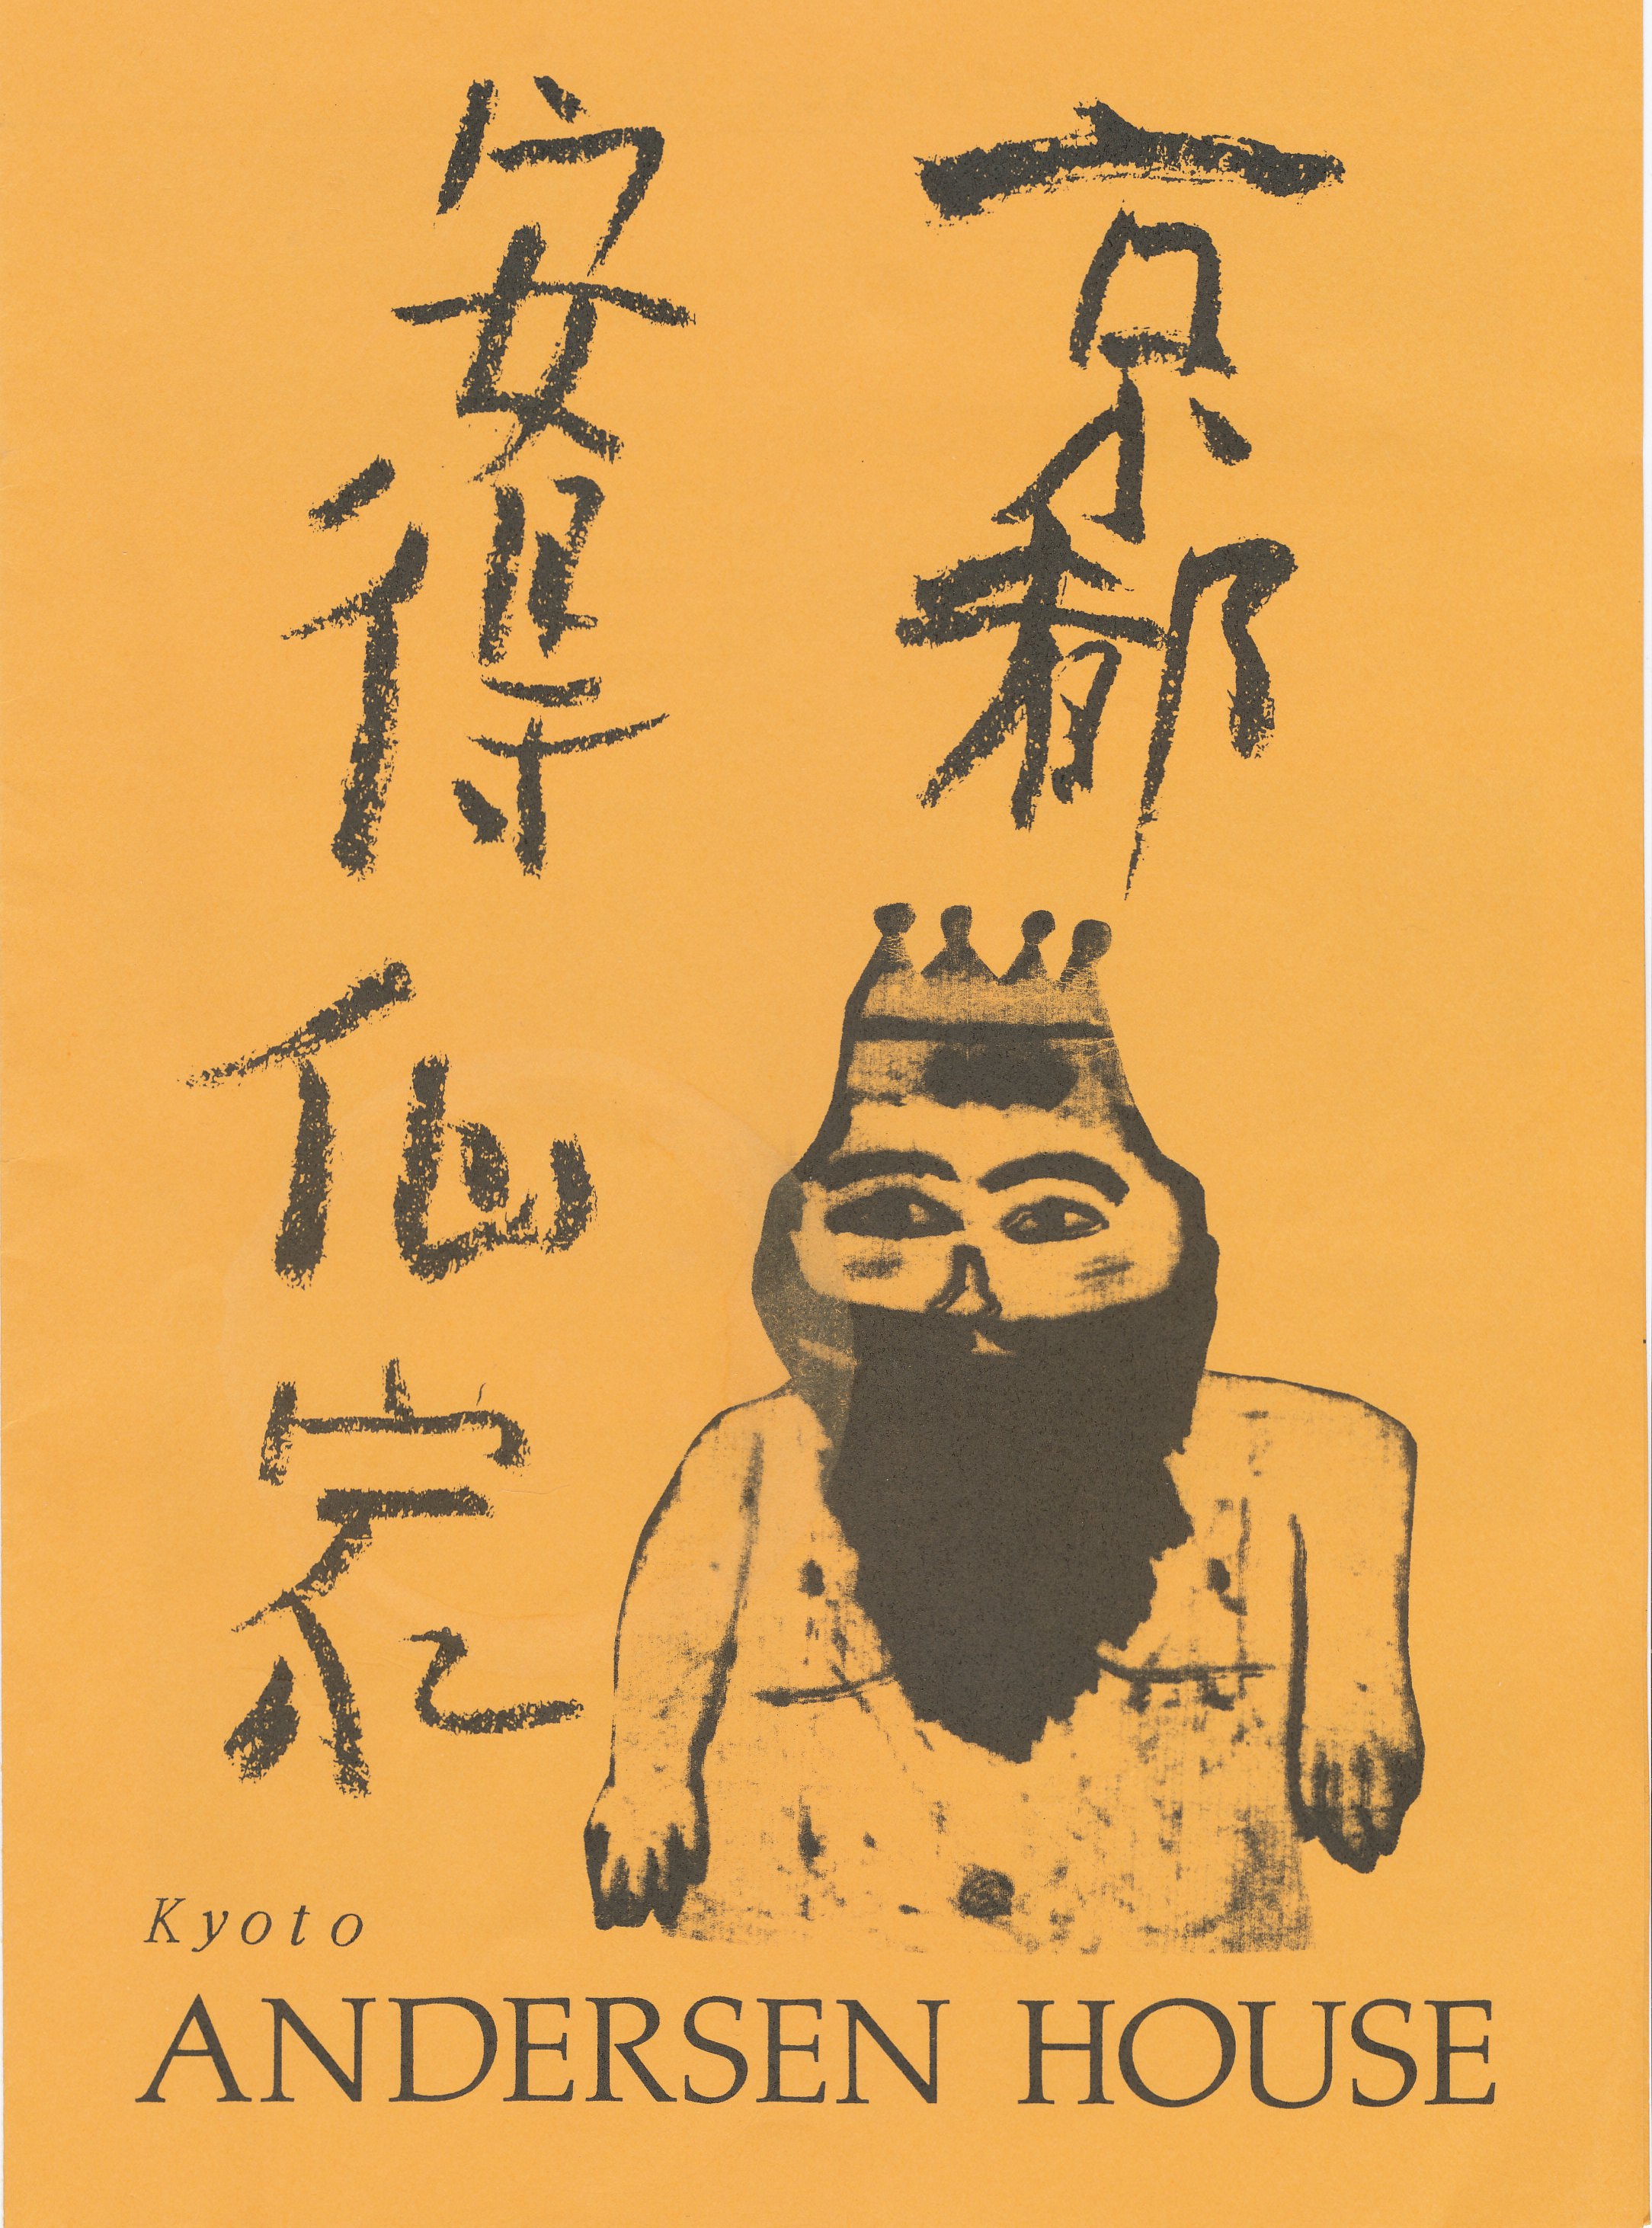 京都
安得仙家
Kyoto
ANDERSEN HOUSE